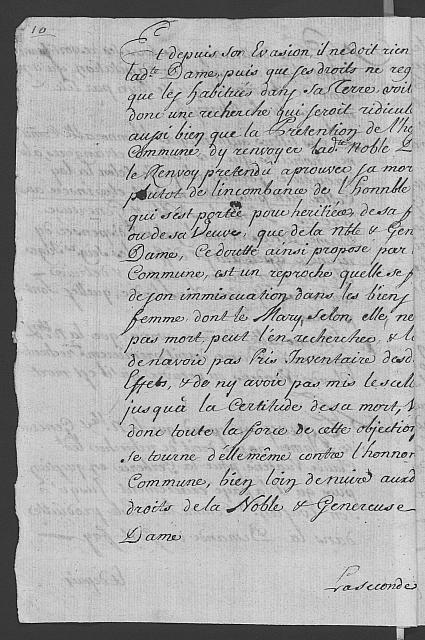 10
Et depuis son Evasion, il ne doit rien
lad.te Dame, puis que ses droits ne reg
que les habitués dans sa Terre, voil
donc une recherche qui seroit ridicul
aussi bien que la Prétention de l'ho
Commune, d'y renvoyer lad.te Noble D
le Renvoy pretendû aprouver sa mor
plutot de l'incombance de l'honnble
qui s'est portée pour heritiée, de sa f
ou de sa Veuve, que de la Nble & Gen
Dame, Ce doutte ainsi propose par
Commune, est un reproche quelle se f
de son immiscuation dans les bien
femme dont le Mary, selon, elle, ne
pas mort, peut l'en rechercher, & l
de n'avoir pas Pris Inventaire desd
Effets, & de ny avoir pas mis les cell
jusqu'à la Certitude de sa mort,
donc toute la force de cette objection
se tourne d'elle même contre l'honnor
Commune, bien loin de nuire auxd
droits de la Noble & Genereuse
Dame
La seconde